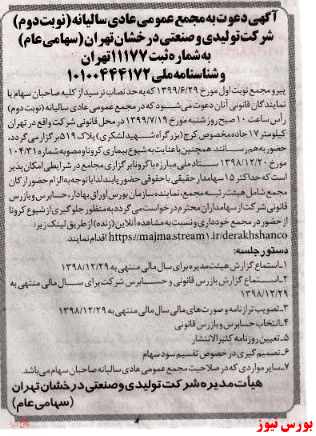 آگهی دعوت به مجمع عمومی عادی سالیانه (نوبت دوم)
شرکت تولیدی و صنعتی درخشان تهران (سهامی عام)
به شماره ثبت ۱۱۱۷۷ تهران
و شناسنامه ملی ۱۰۱۰۰۴۴۴۱۷۲
پیرو مجمع نوبت اول مورخ ۱۳۹۹/۶/۲۹ که به حد نصاب نرسید از کلیه صاحبان سهام یا
نمایندگان قانونی آنان دعوت می‌شود که در مجمع عمومی عادی سالیانه (نوبت دوم)
رأس ساعت ۱۰ صبح روز شنبه مورخ ۱۳۹۹/۷/۱۹ در محل قانونی شرکت واقع در تهران
کیلومتر ۱۷ جاده مخصوص کرج (بزرگراه شهید لشکری) پلاک ۵۱۹ برگزار می‌گردد
حضور به هم رسانند. همچنین با عنایت به شیوع بیماری کرونا و مصوبه شماره ۱۰۴/۳۱
مورخ ۱۳۹۸/۱۲/۲۰ ستاد ملی مبارزه با کرونا برگزاری مجامع در شرایطی امکان پذیر
است که حداکثر ۱۵ سهامدار حقیقی یا حقوقی حضور یابند لذا با توجه به الزام حضور ارکان
مجمع شامل هیئت رئیسه مجمع، نماینده سازمان بورس اوراق بهادار، حسابرس و بازرس
قانونی شرکت از سهامداران محترم درخواست می‌گردد به منظور جلوگیری از شیوع کرونا
از حضور در مجمع خودداری و نسبت به مشاهده آنلاین (زنده) از طریق لینک زیر:
https://majma.stream1.ir/derakhshanco اقدام نمایند.
دستور جلسه:
۱-استماع گزارش هیئت مدیره برای سال مالی منتهی به ۱۳۹۸/۱۲/۲۹
۲-استماع گزارش بازرس قانونی و حسابرس شرکت برای سال مالی منتهی به
۱۳۹۸/۱۲/۲۹
۳-تصویب ترازنامه و صورت‌های مالی سال مالی منتهی به ۱۳۹۸/۱۲/۲۹
۴-انتخاب حسابرس و بازرس قانونی
۵-تعیین روزنامه کثیرالانتشار
۶-تصمیم گیری در خصوص تقسیم سود سهام
۷-سایر مواردی که در صلاحیت مجمع عمومی عادی سالیانه صاحبان سهام می‌باشد.
هیأت مدیره شرکت تولیدی و صنعتی درخشان تهران
(سهامی عام)
بورس نیوز